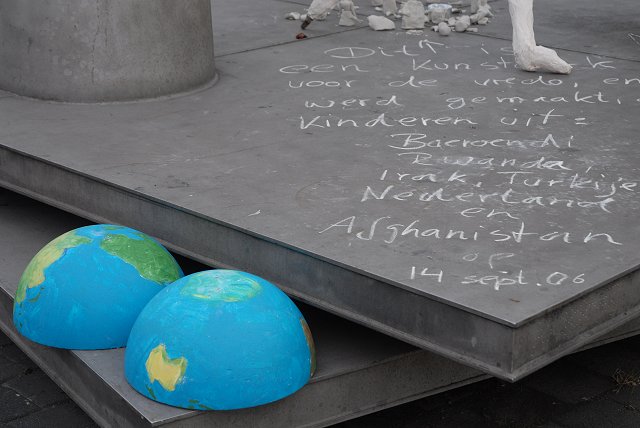 Dit is
een kunstwerk
voor de vrede, en
werd gemaakt.
kinderen uit:
Baeroendi
Rwanda,
Irak, Turkije
Nederland
en
Afghanistan
op
14 sept. 06